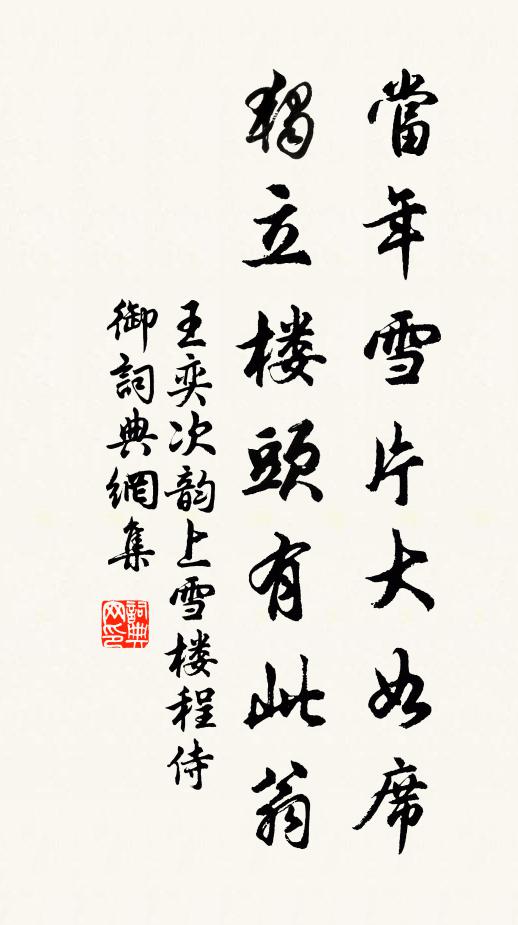 當年雪片大如席
獨立楼頭有此翁
王奕次韵上雪楼程侍
御詞典網集
詞典网印